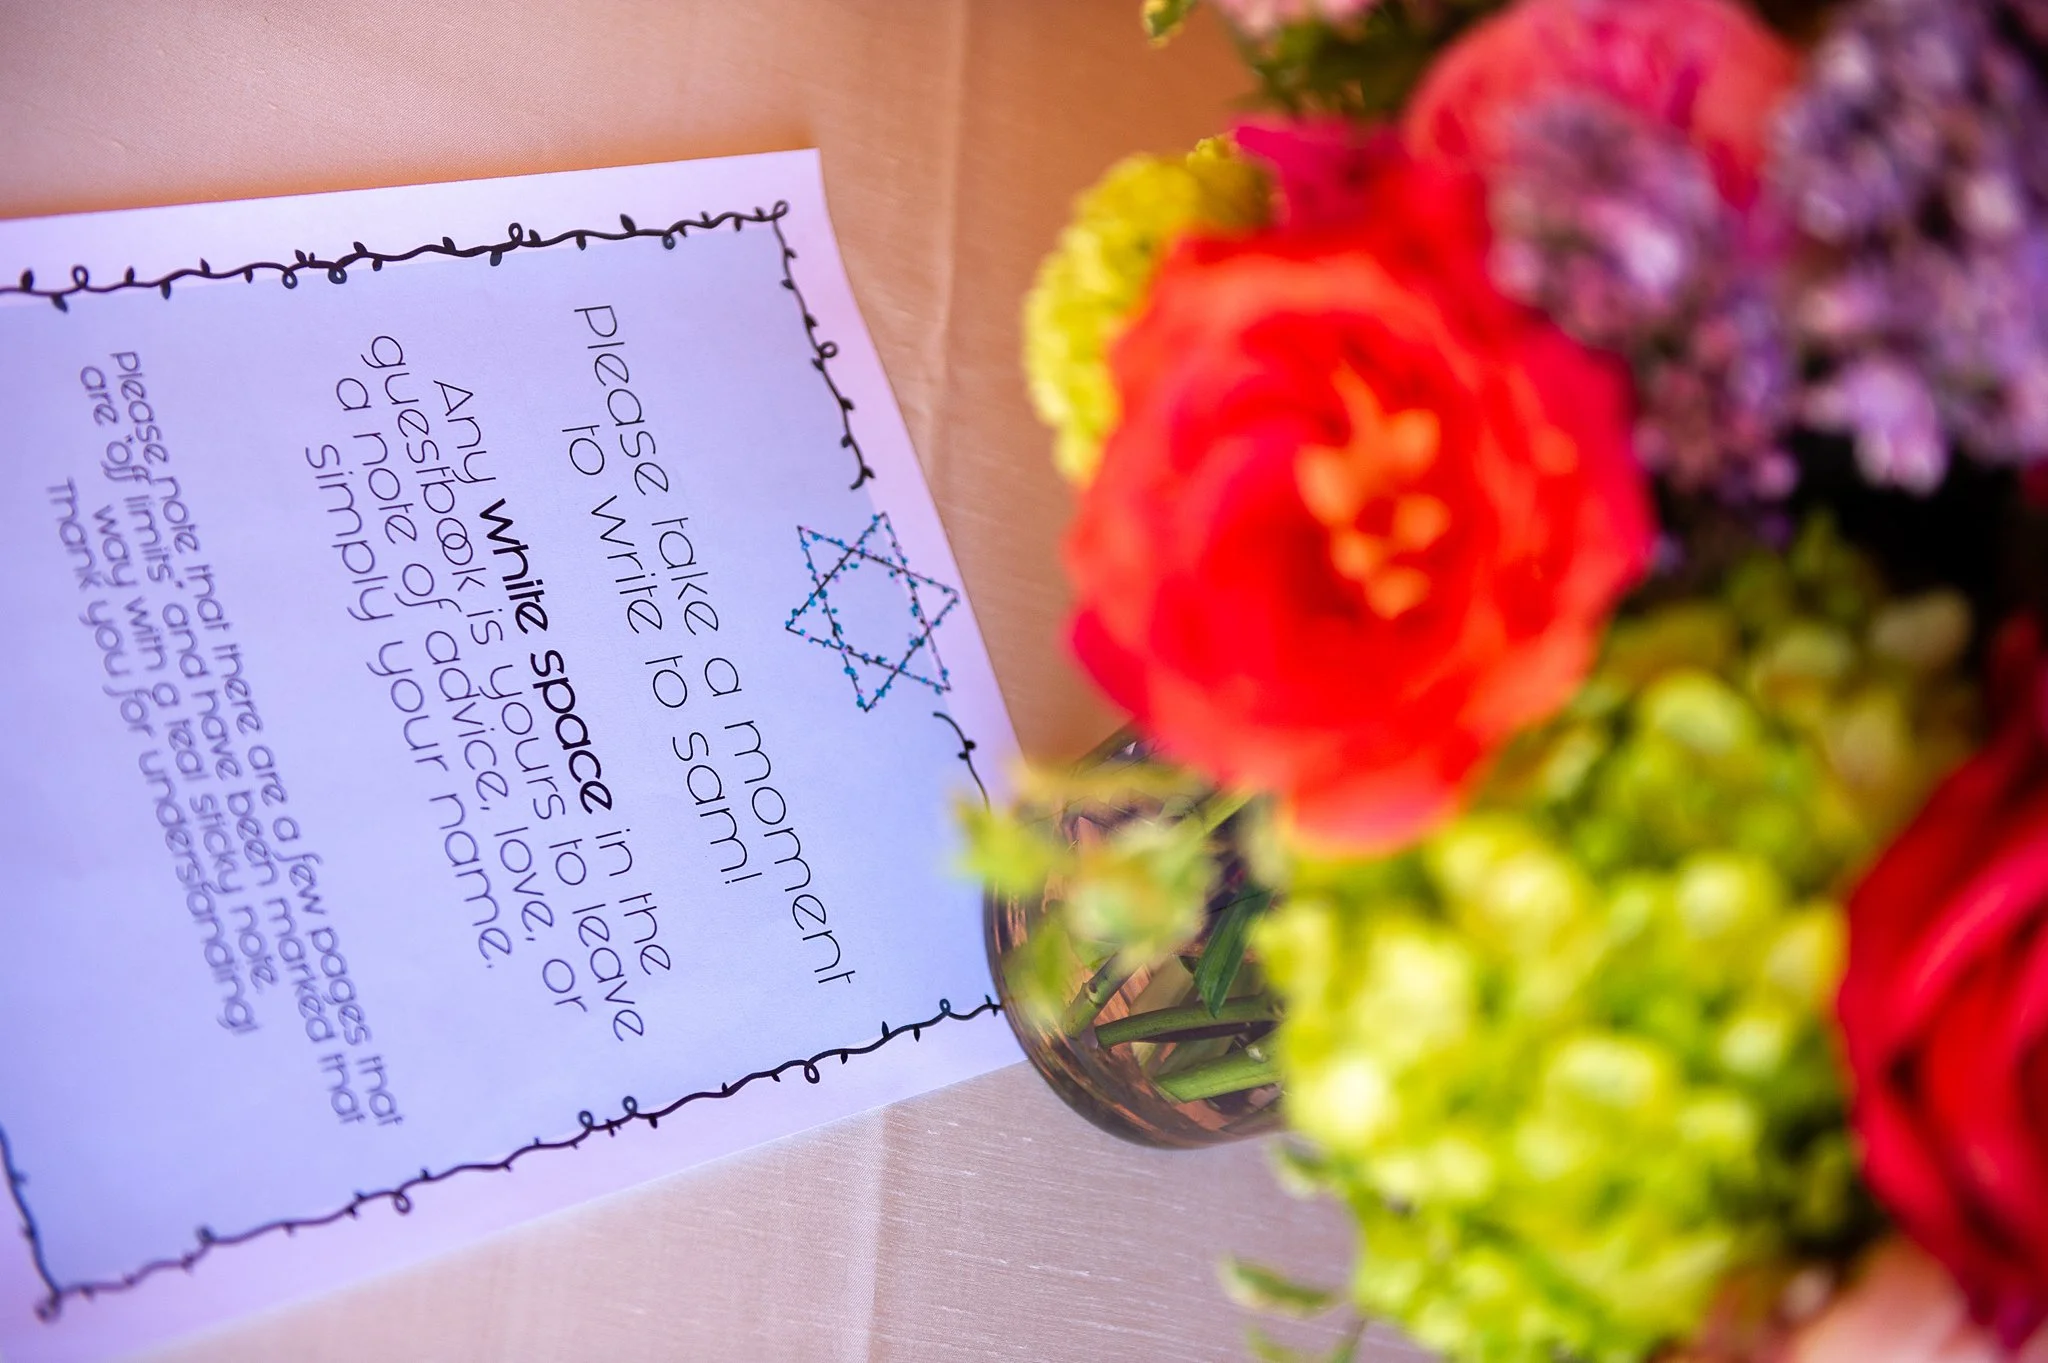 please take a moment
to write to sam!
Any white space in the
guestbook is yours to leave
a note of advice, love, or
simply your name.
please note that there are a few pages that
are "off limits" and have been marked that
way with a teal sticky note
Thank you for understanding!